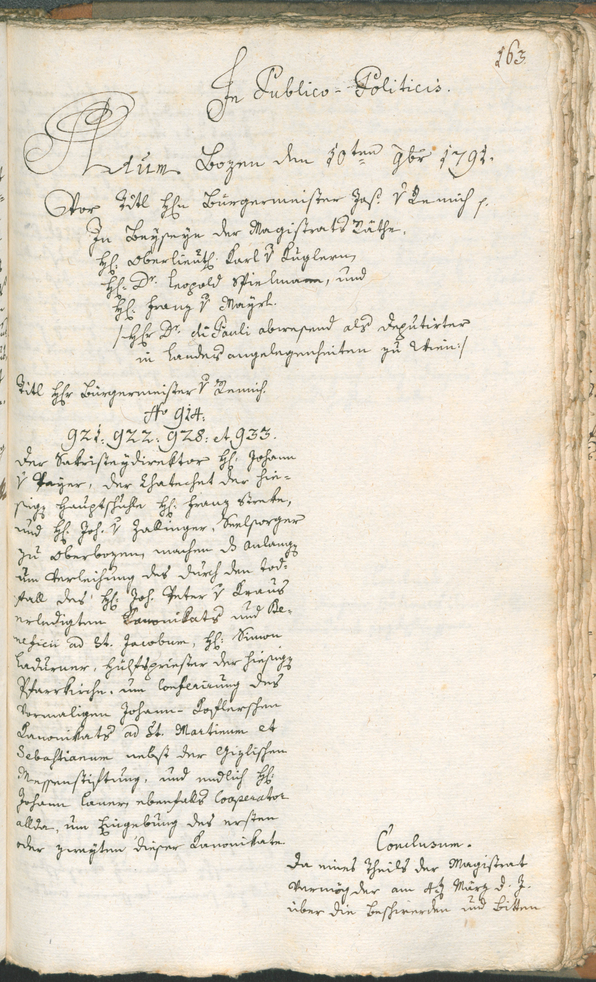 163.
In Publico-Politicis.
Actum Bozen den 10ten 9br 1791.
Vor Titl Hhn Bürgermeister Jos: v Remich p.
In Beyseyn der Magistrats Räthe,
Hh: Oberlieuth: Karl v Kuglern,
Hh: Dr. Leopold Spielmann, und
Hh: Franz v Mayrl.
/:Hh Dr. di Pauli abwesend als Deputirter
in Landesangelegenheiten zu Wien:/
Titl Hhr Bürgermeister v Remich.
No 914:
921: 922: 928: et 933.
Der Sakristeydirektor Hh: Johann
v Payer, der Chatechet der hie-
sigen Hauptschule Hh: Franz Streke,
und Hh: Joh: v Zallinger, Seelsorger
zu Oberbozen, machen d Anlangen
um Verleihung des durch den Tod-
fall des Hh: Joh: Peter v Kraus
erledigten Kanonikats und Be-
neficii ad St. Jacobum, Hh: Simon
Ladurner, Hülfspriester der hiesigen
Pfarrkirche, um Conferirung des
vormaligen Johann-Koflerschen
Kanonikats ad St. Martinum et
Sebastianum nebst der
Messenstiftung, und endlich Hh:
Johann Laner, ebenfals Cooperator
allda, um Eingebung des ersten
oder zweyten dieser Kanonikate.
Conclusum.
Da eines Theils der Magistrat
vermög der am 4ten März d. J.
über die Beschwerden und Bitten